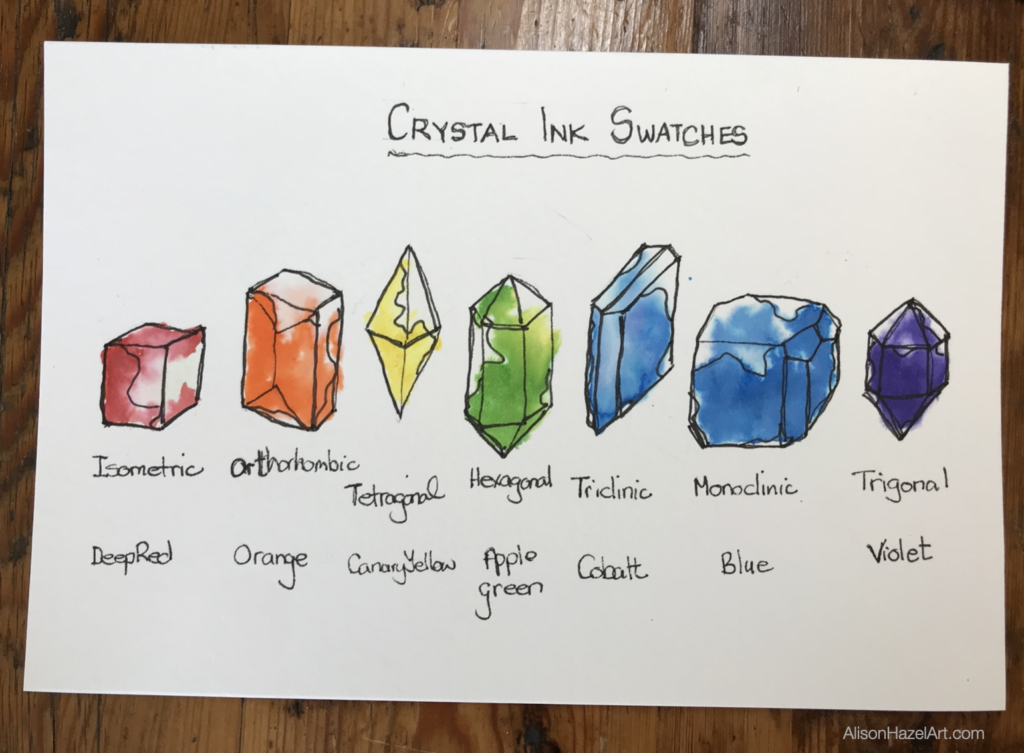 CRYSTAL INK SWATCHES
Isometric
Orthorhombic
Tetragonal
Hexagonal
Triclinic
Monoclinic
Trigonal
Deep Red
Orange
Canary Yellow
Apple
green
Cobalt
Blue
Violet
AlisonHazelArt.com